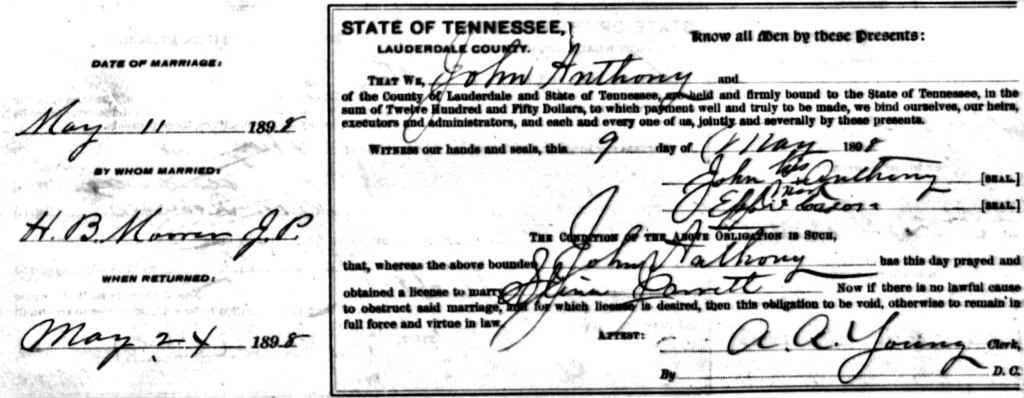 DATE OF MARRIAGE:
May 11 1898
BY WHOM MARRIED:
H. B. J. P.
WHEN RETURNED:
May 24 1898
STATE OF TENNESSEE,
LAUDERDALE COUNTY.
Know all Men by these Presents:
THAT WE, John Anthony and
of the County of Lauderdale and State of Tennessee, are held and firmly bound to the State of Tennessee, in the
sum of Twelve Hundred and Fifty Dollars, to which payment well and truly to be made, we bind ourselves, our heirs,
executors and administrators, and each and every one of us, jointly and severally by these presents.
WITNESS our hands and seals, this 9 day of May 1898
John his Anthony [SEAL.]
mark
Effie [SEAL.]
THE CONDITION OF THE ABOVE OBLIGATION IS SUCH,
that, whereas the above bounden John Anthony has this day prayed and
obtained a license to marry Jarrett Now if there is no lawful cause
to obstruct said marriage, and for which license is desired, then this obligation to be void, otherwise to remain in
full force and virtue in law.
ATTEST: A. A. Young Clerk,
By D. C.